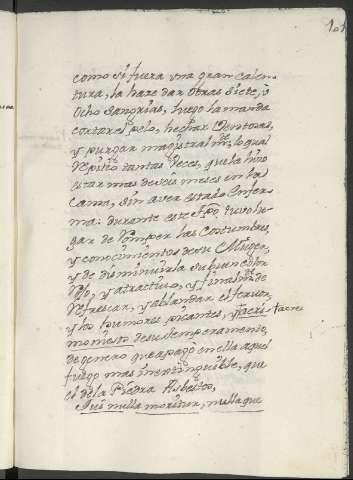 101
como si fuera una gran calen-
tura, la hace dar otras siete, ô
ocho sangrias, luego la manda
cortar el pelo, hechar Ventosas,
y purgar magistralmte, lo qual
Repitió tantas Veces, que la hizo
estar mas de seis meses en la
Cama, sin aver estado enfer-
ma: durante este tpo tuvo lu-
gar de Romper las costumbres,
y conocimientos de su Muger,
y de disminuirla su buen color
y atractivo, y finalmte de
Refrescar, y ablandar el
y los humores picantes, y
de su temperamento,
de genero que apagó en ella aquel
fuego mas inextinguible, que
el de la Piedra Asbestos,
nulla moritur, nullaque